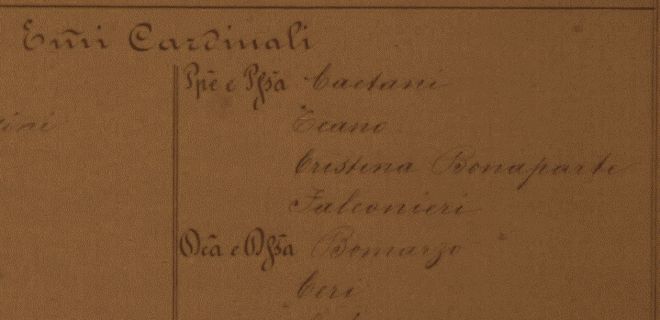 Emi Cardinali
Ppe e Pssa Caetani
Teano
Cristina Bonaparte
Falconieri
Dca e Dssa Bomarzo
Ceri